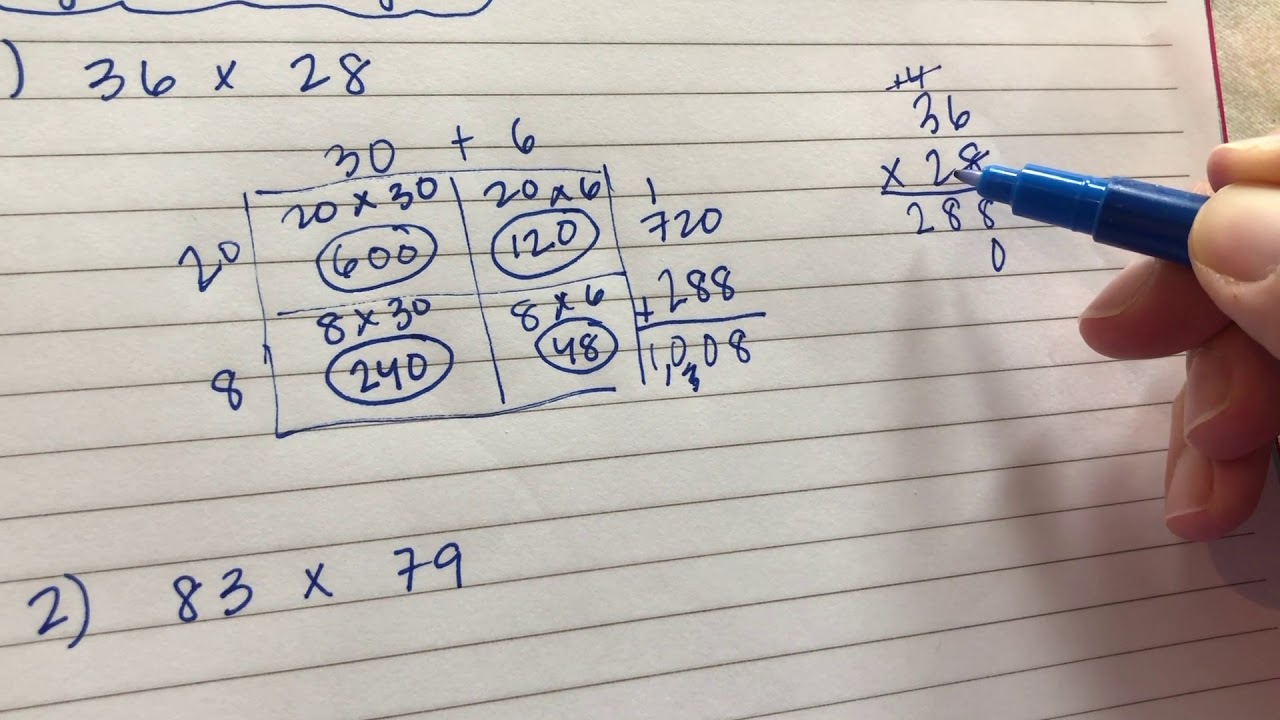 ) 36 x 28
30 + 6
20 20 x 30 20 x 6
600 120
8 8 x 30 8 x 6
240 48
1
720
+ 288
1,008
+4
36
x 28
288
0
2) 83 x 79